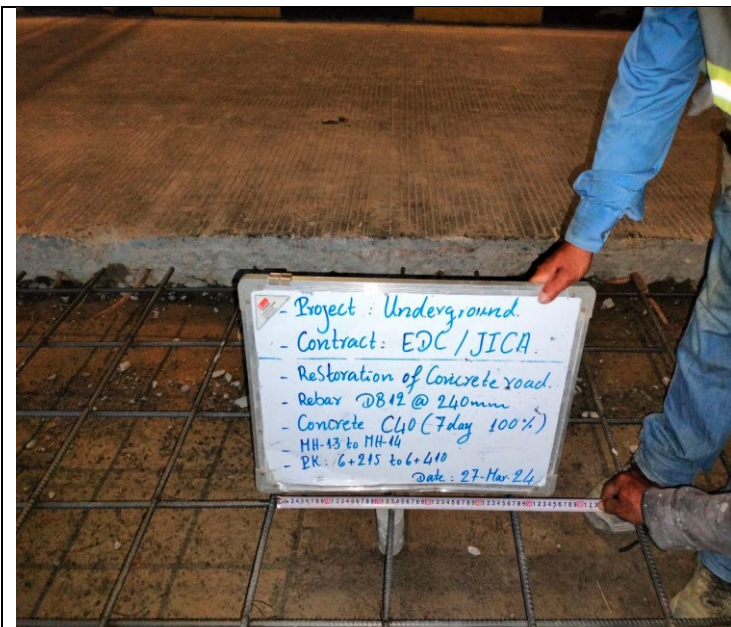 - Project : Underground.
- Contract: EDC / JICA.
- Restoration of Concrete road.
- Rebar DB12 @ 240mm
- Concrete C40 (7day 100%)
- MH-13 to MH-14
- PK: 6+215 to 6+410
Date: 27-Mar-24